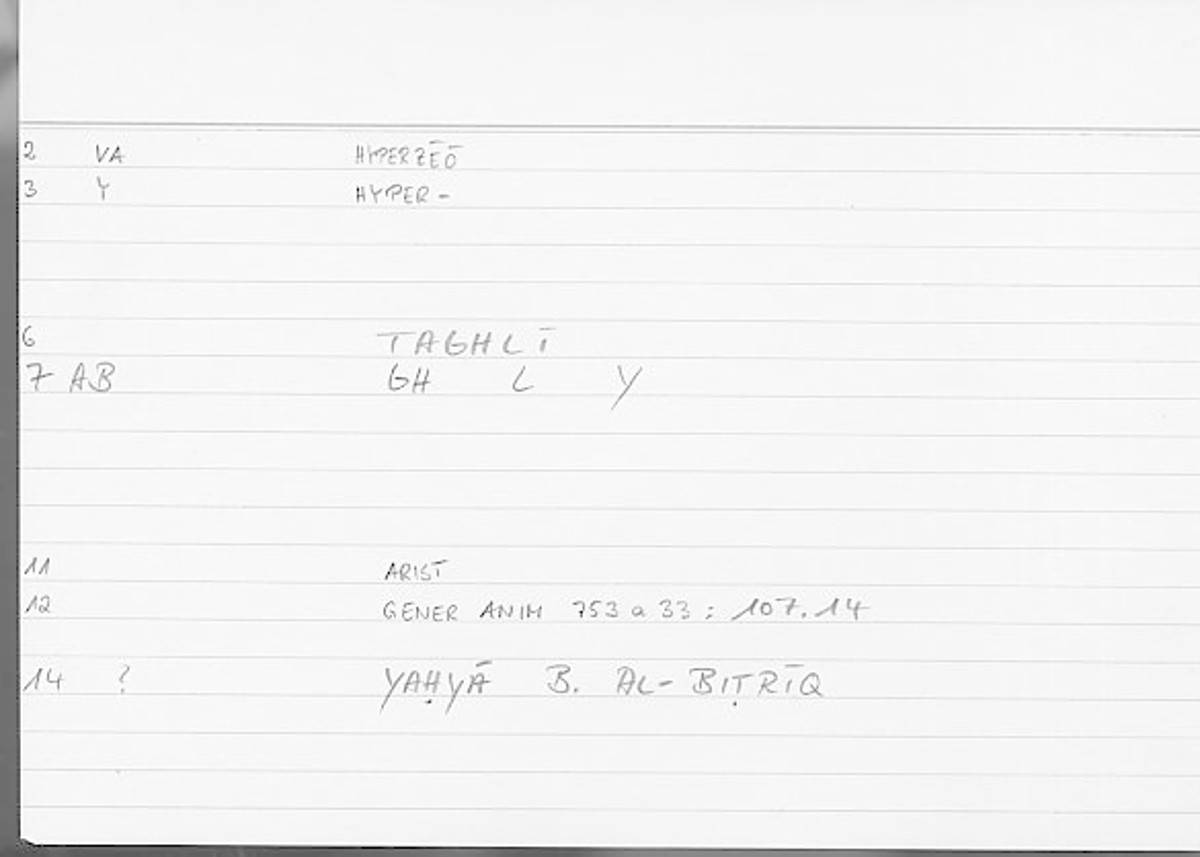 2 VA HYPERZĒŌ
3 Y HYPER-
6 TAGHLĪ
7 AB GH L Y
11 ARIST
12 GENER ANIM 753 a 33 : 107.14
14 ? YAḤYĀ B. AL-BIṬRĪQ